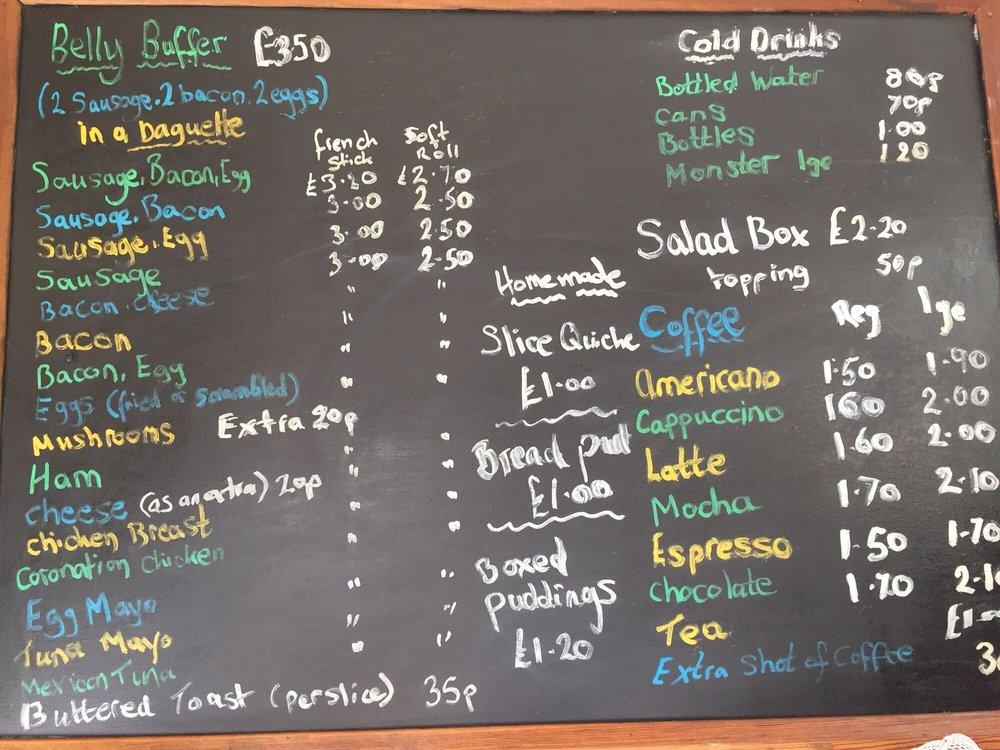 Belly Buffer £350
(2 Sausage.2 bacon.2eggs)
in a Daguette
french stick
Soft Roll
Sausage, Bacon, Egg £3.20 £2.70
Sausage. Bacon 3.00 2.50
Sausage. Egg 3.00 2.50
Sausage 3.00 2.50
Bacon. cheese " "
Bacon " "
Bacon, Egg " "
Eggs (fried or scrambled) " "
Mushrooms Extra 20p
Ham " "
cheese (as an extra) 20p " "
chicken Breast " "
Coronation chicken " "
Egg Mayo " "
Tuna Mayo " "
Mexican Tuna " "
Buttered Toast (perslice) 35p
Homemade
Slice Quiche
£1.00
Bread pud
£1.00
Boxed
puddings
£1.20
Cold Drinks
Bottled Water 80p
cans 70p
Bottles 1.00
Monster lge 120
Salad Box £2.20
topping 50p
Coffee Reg lge
Americano 1.50 1.90
Cappuccino 160 2.00
Latte 1.60 2.00
Mocha 1.70 2.10
Espresso 1.50 1.70
Chocolate 1.70 2.1
Tea £1.
Extra Shot of Coffee 3